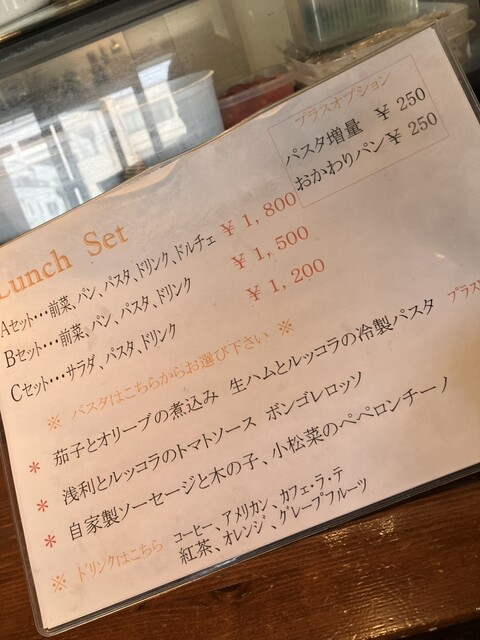 プラスオプション
パスタ増量 ¥ 250
おかわりパン ¥ 250
Lunch Set
Aセット・・・前菜、パン、パスタ、ドリンク、ドルチェ ¥ 1,800
Bセット・・・前菜、パン、パスタ、ドリンク ¥ 1,500
Cセット・・・サラダ、パスタ、ドリンク ¥ 1,200
※ パスタはこちらからお選び下さい ※
* 茄子とオリーブの煮込み 生ハムとルッコラの冷製パスタ プラス
* 浅利とルッコラのトマトソース ボンゴレロッソ
* 自家製ソーセージと木の子、小松菜のペペロンチーノ
※ ドリンクはこちら コーヒー、アメリカン、カフェ・ラ・テ
紅茶、オレンジ、グレープフルーツ